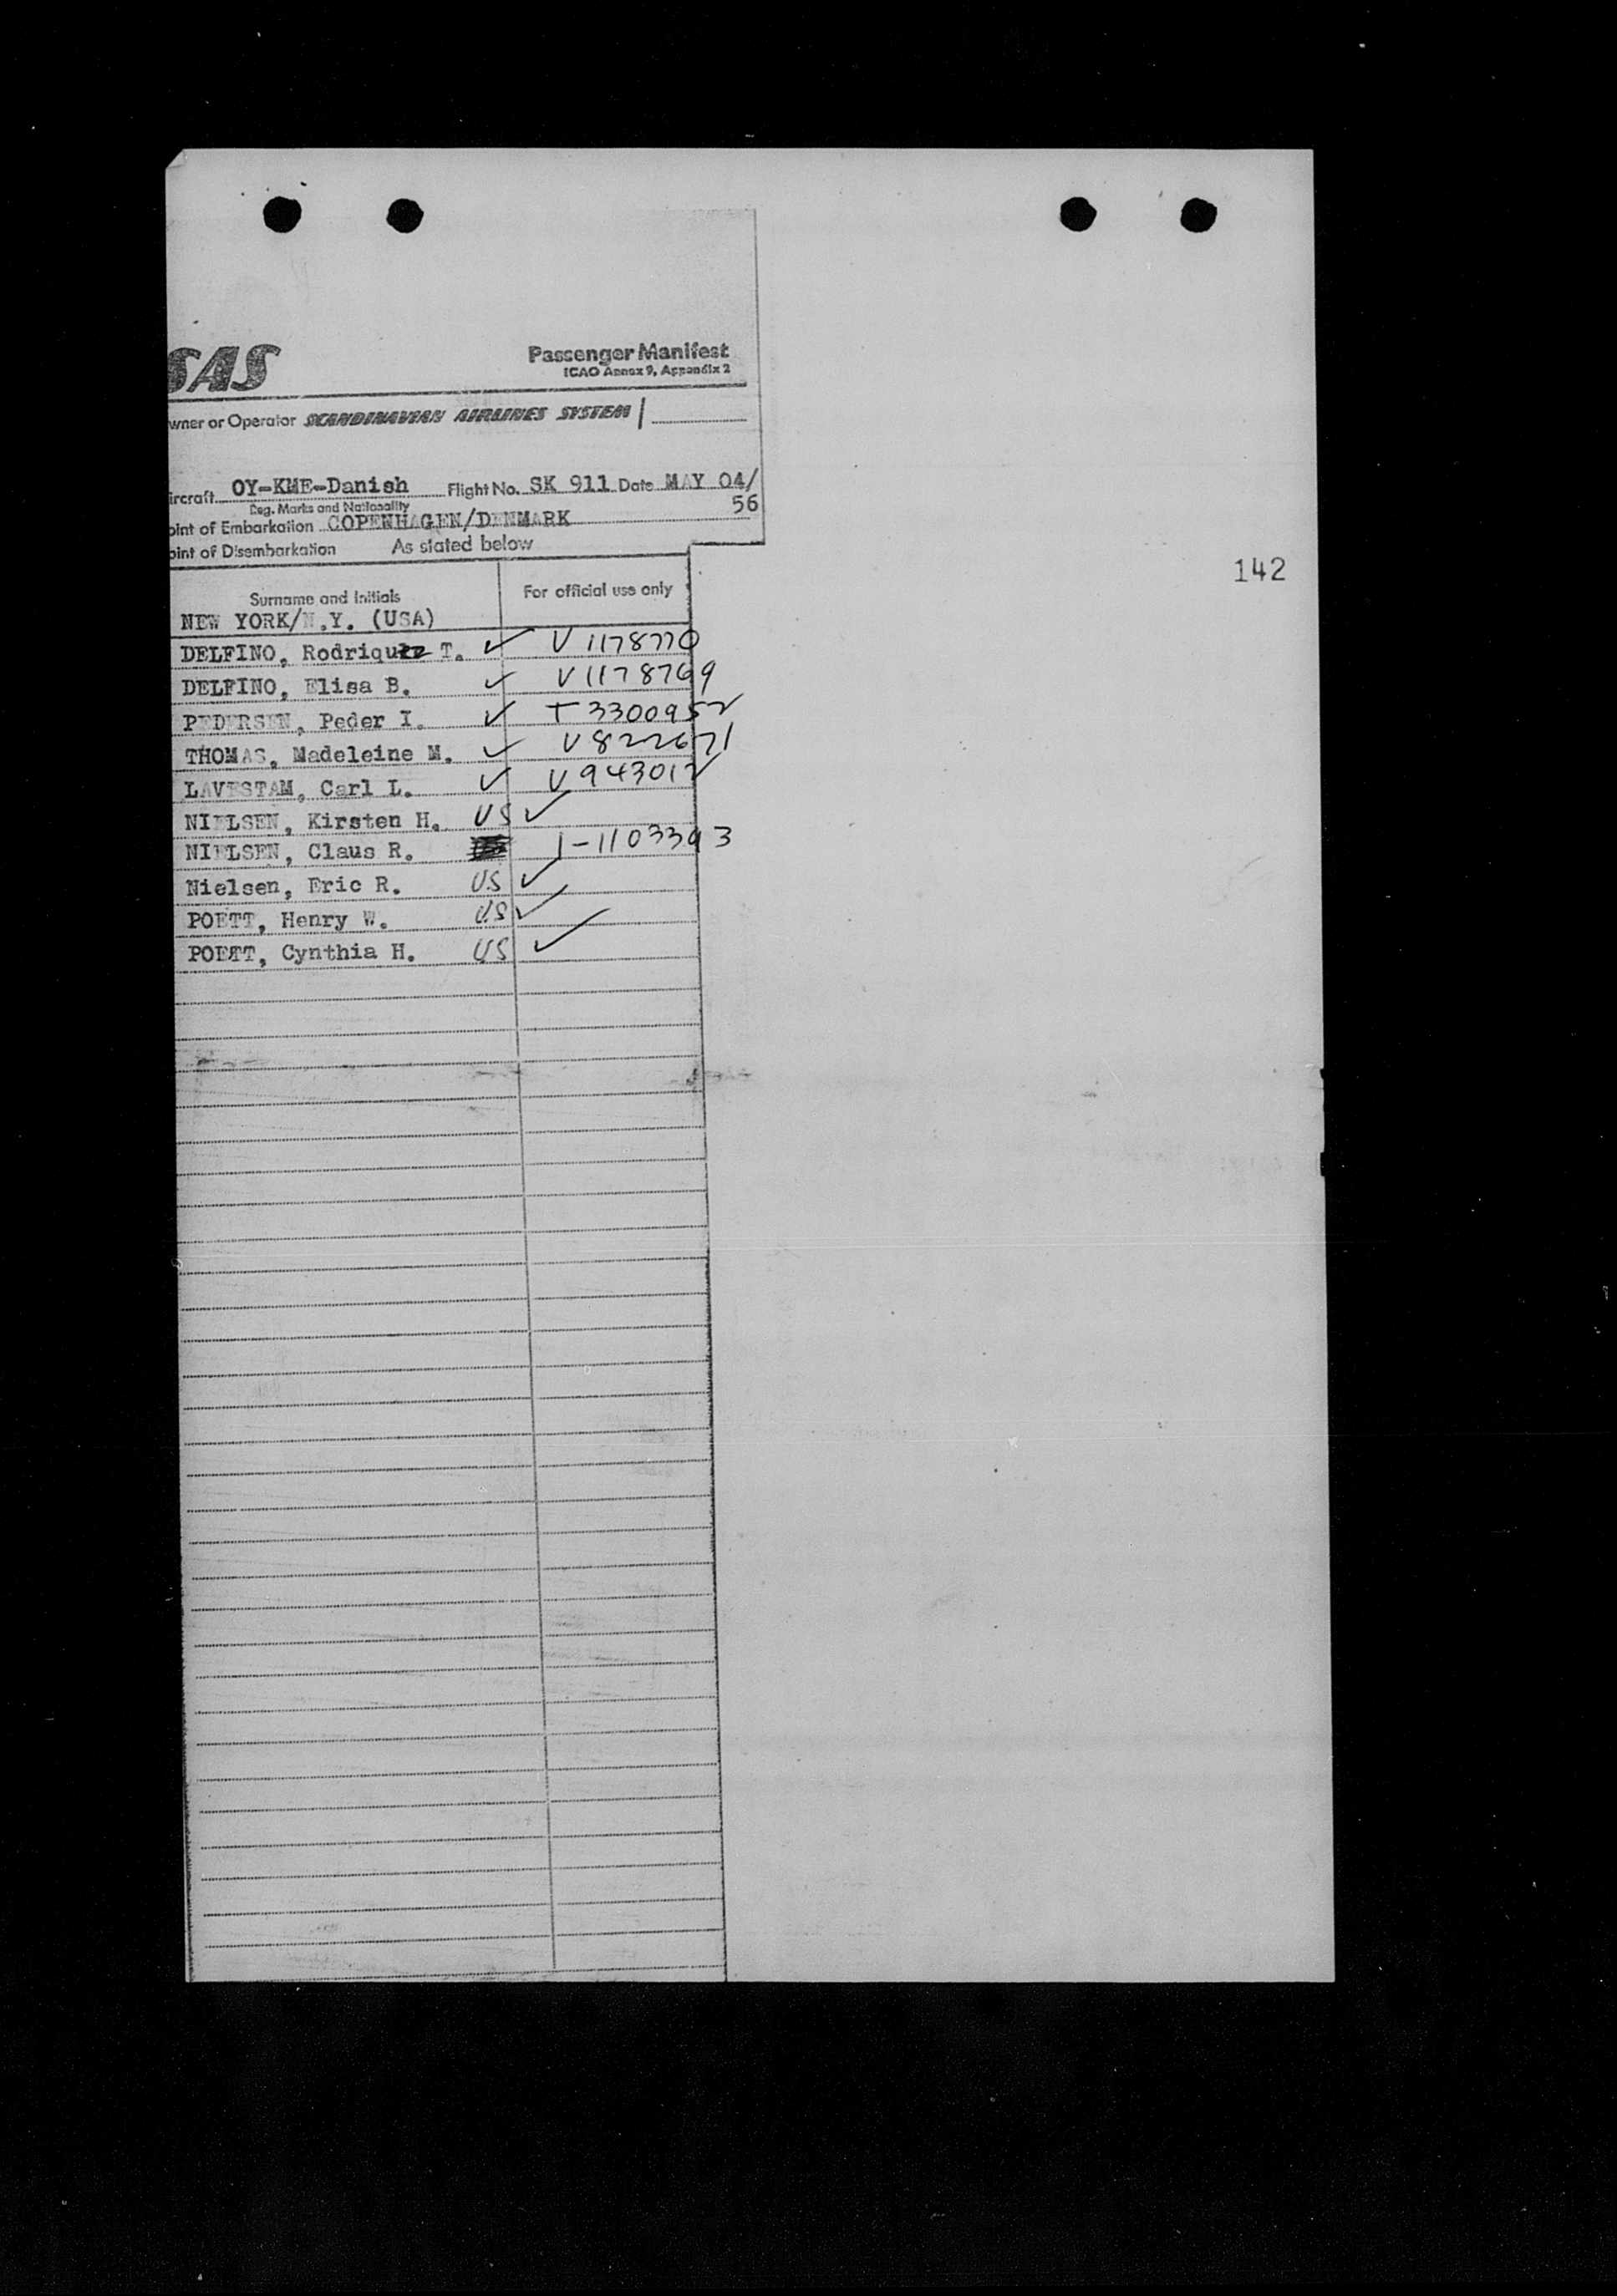 SAS
Passenger Manifest
ICAO Annex 9, Appendix 2
wner or Operator SCANDINAVIAN AIRLINES SYSTEM
ircraft OY-KME-Danish Flight No. SK 911 Date MAY 04/
56
Reg. Marks and Nationality
oint of Embarkation COPENHAGEN/DENMARK
oint of Disembarkation As stated below
142
Surname and Initials For official use only
NEW YORK/N.Y. (USA)
DELFINO, Rodriquez T. ✓ V 1178770
DELFINO, Elisa B. ✓ V1178769
PEDERSEN, Peder I. ✓ T 3300952
THOMAS, Madeleine M. ✓ V822671
LAVESTAM, Carl L. ✓ V943012
NIELSEN, Kirsten H. US ✓
NIELSEN, Claus R. 1-1103393
Nielsen, Eric R. US ✓
POETT, Henry W. U.S ✓
POETT, Cynthia H. US ✓